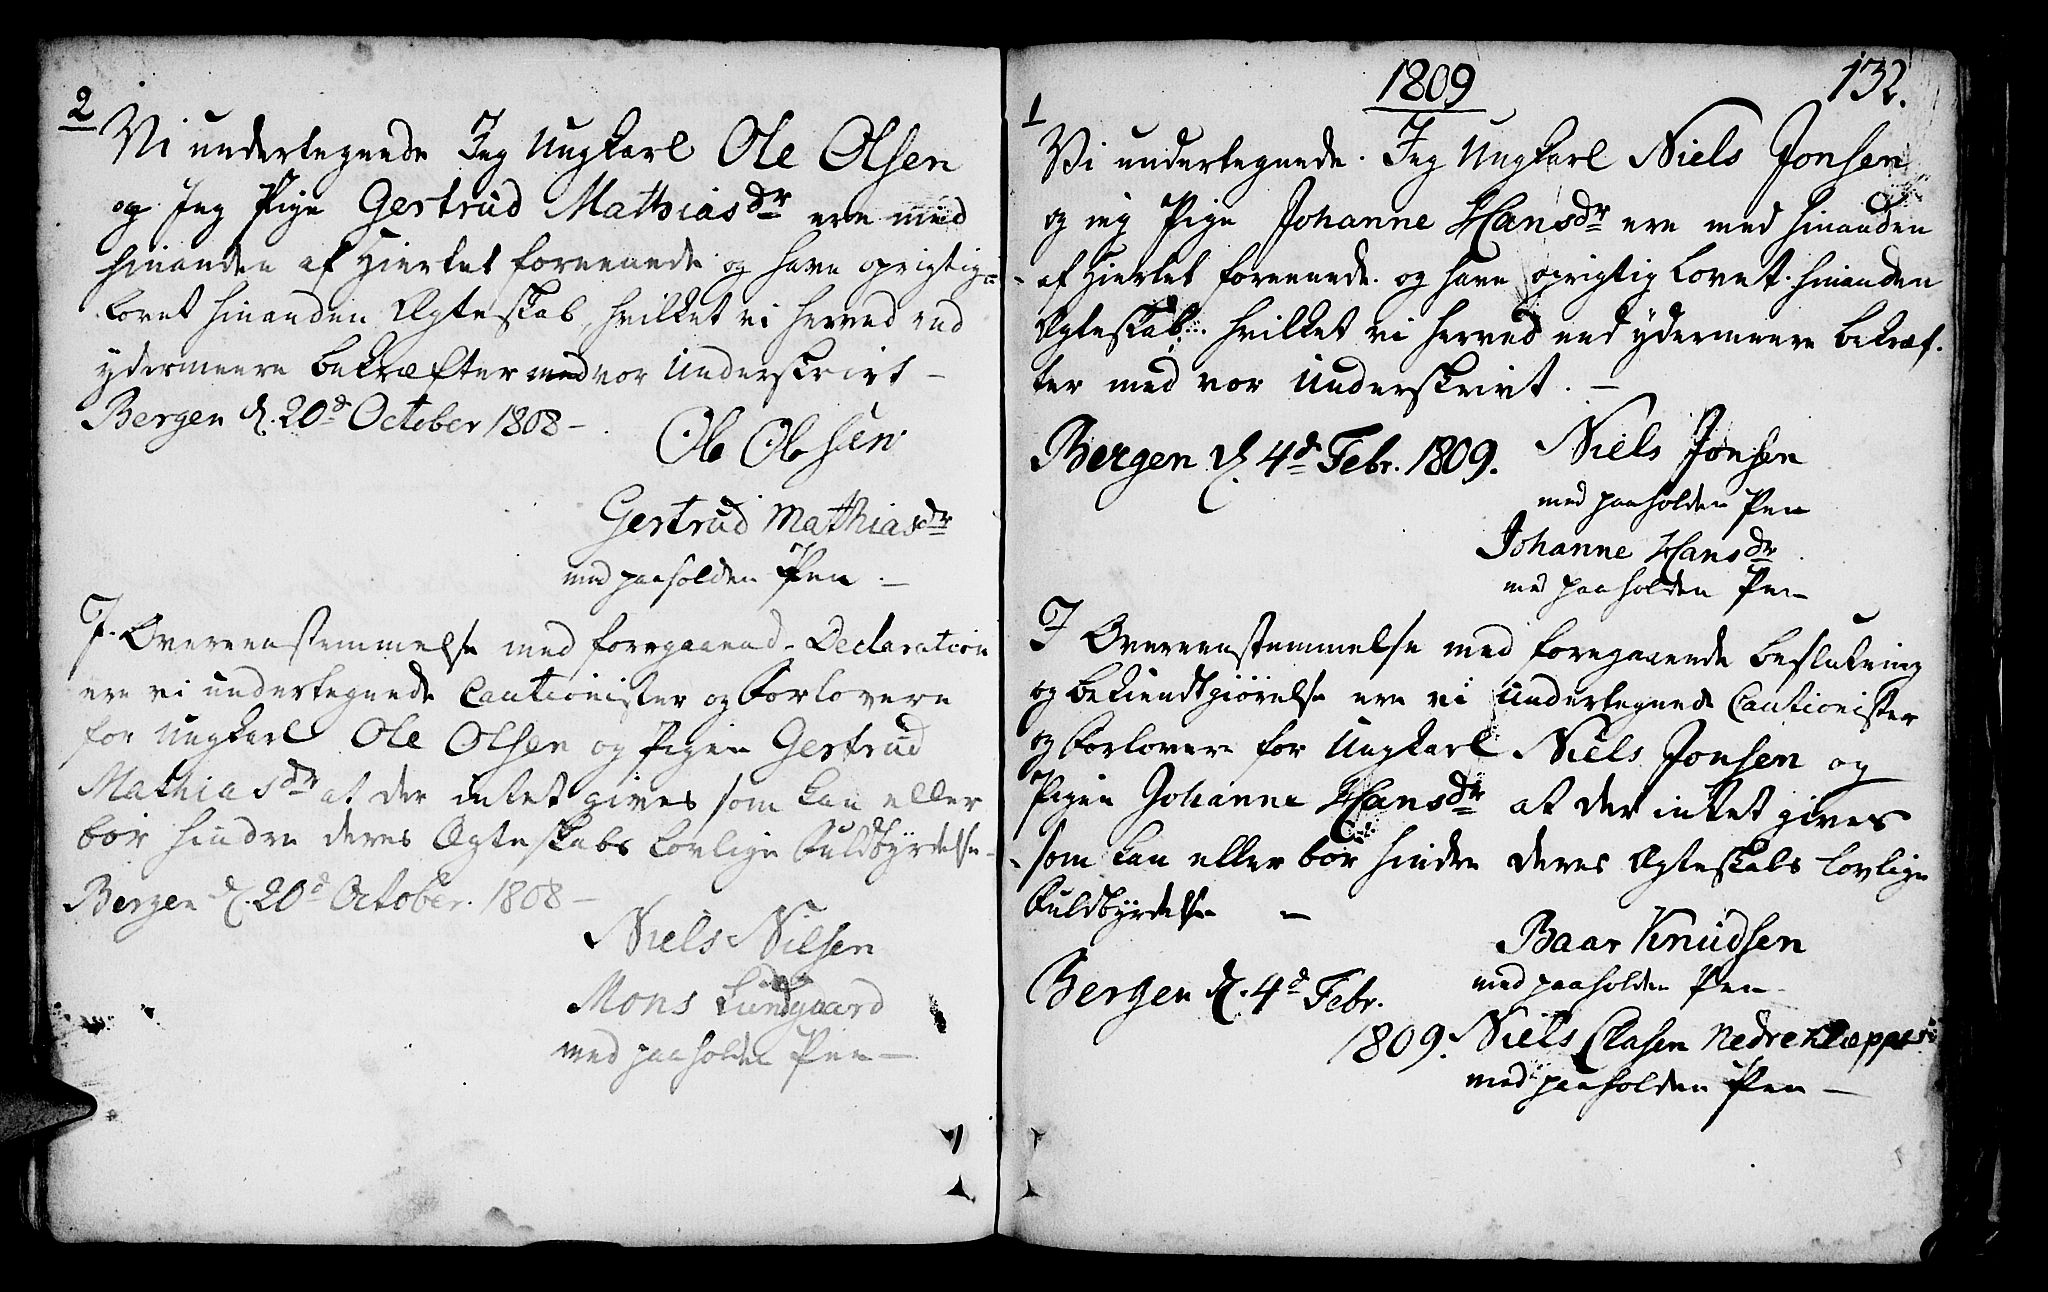 2
Vi undertegnede Jeg Ungkarl Ole Olsen
og Jeg Pige Gertrud Mathiasdr ere med
hinanden af Hiertet foreenede og have oprigtig
lovet hinanden Ægteskab, hvilket vi herved end
ydermeere bekræfter med vor Underskrivt –
Bergen d. 20d October 1808 –
Ole Olsen
Gertrud Mathiasdr
med paaholden Pen. –
I Overeenstemmelse med foregaaende Declaration
ere vi undertegnede Cautionister og Forlovere
for Ungkarl Ole Olsen og Pigen Gertrud
Mathiasdr at der intet gives som kan eller
bör hindre deres Ægteskabs lovlige Fuldbyrdelse –
Bergen d. 20d October. 1808 –
Niels Nilsen
Mons Lundgaard
med paaholden Pen –
1809
132.
1
Vi undertegnede. Jeg Ungkarl Niels Jonsen
og jeg Pige Johanne Hansdr ere med hinanden
af Hiertet foreenede og have oprigtig lovet hinanden
Ægteskab. hvilket vi herved end ydermeere bekræf-
ter med vor Underskrivt. –
Bergen d. 4d Febr. 1809.
Niels Jonsen
med paaholden Pen
Johanne Hansdr
med paaholden Pen
I Overeenstemmelse med foregaaende beslutning
og bekiendtgiörelse ere vi Undertegnede Cautionister
og Forlovere for Ungkarl Niels Jonsen og
Pigen Johanne Hansdr at der intet gives
som kan eller bör hindre deres Ægteskabs lovlige
Fuldbyrdelse –
Baar Knudsen
med paaholden Pen
Bergen d. 4d Febr.
1809.
Niels Clasen Nedre
med paaholden Pen –